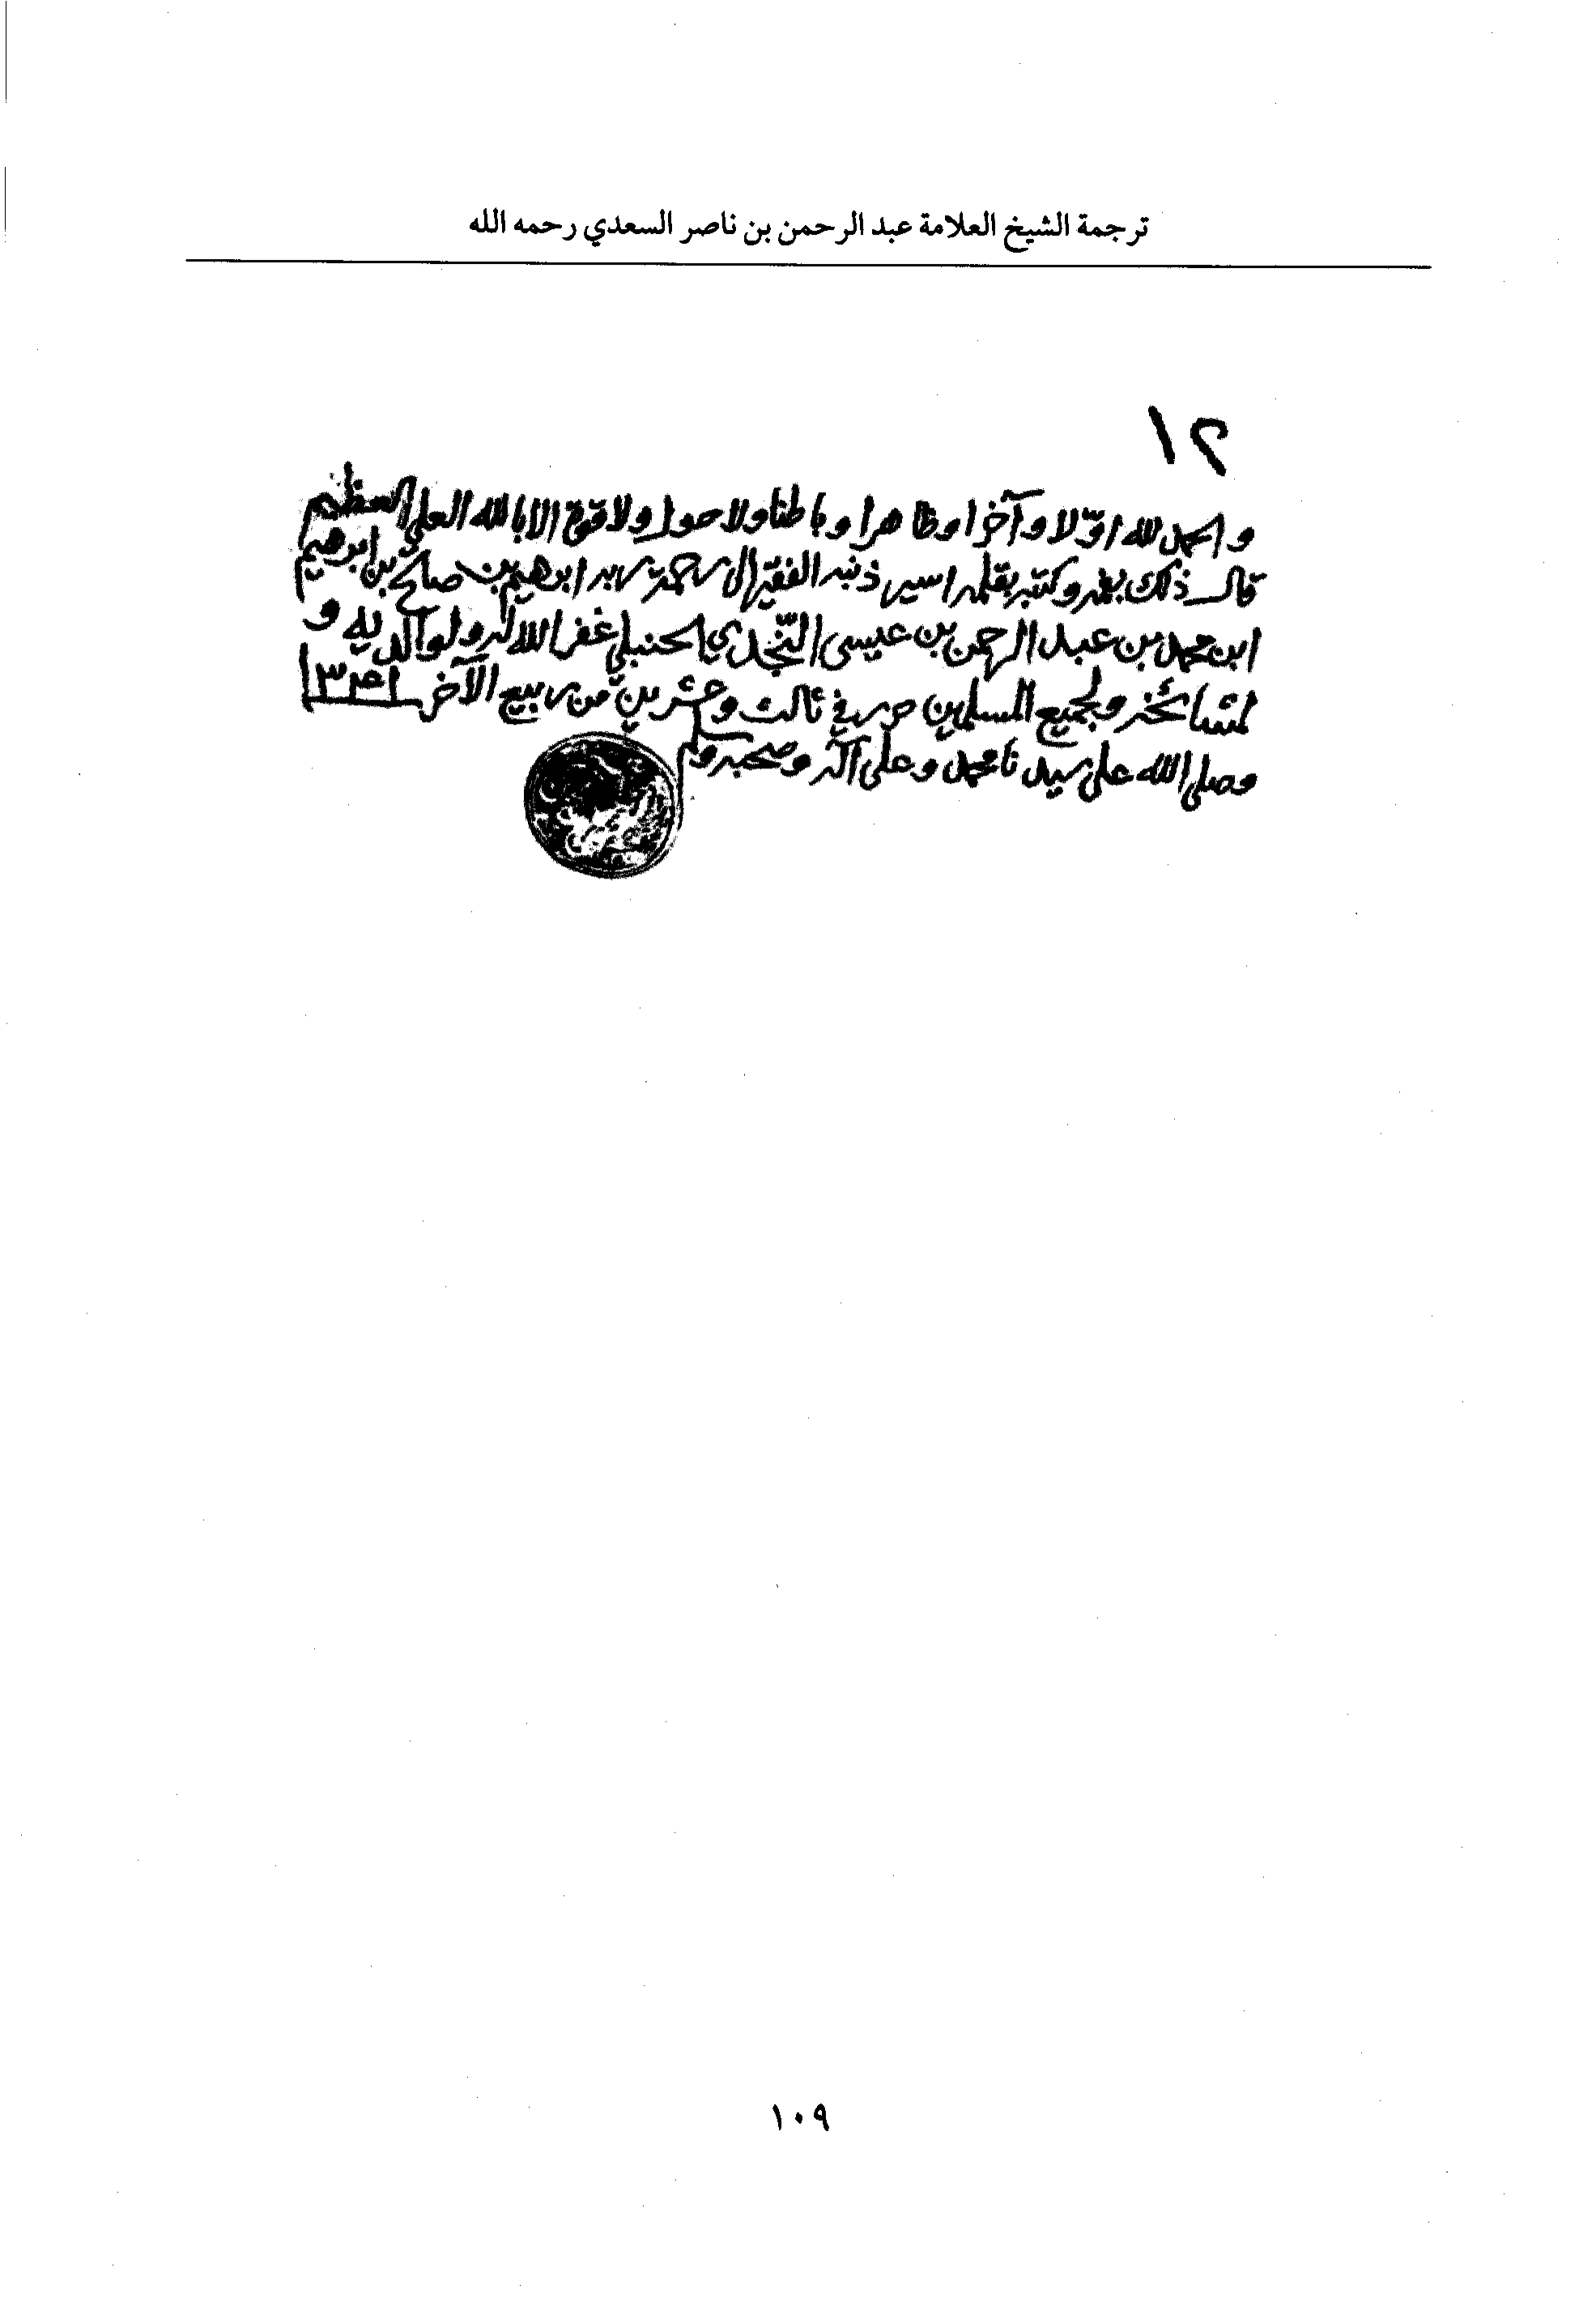 ترجمة الشيخ العلامة عبد الرحمن بن ناصر السعدي رحمه الله
١٢
والحمد لله اوّلا وآخرا وظاهرا وباطنا ولا حول ولا قوة الا بالله العلي العظيم
قال ذلك بفمه وكتبه بقلمه اسير ذنبه الفقير الى رحمة ربه ابرهيم بن صالح بن ابرهيم
ابن محمد بن عبد الرحمن بن عيسى النّجدي الحنبلي غفر الله له ولوالديه و
لمشائخه ولجميع المسلمين حرر في ثالث وعشرين من ربيع الآخر
وصلى الله على سيدنا محمد وعلى آله وصحبه وسلم
١٠٩